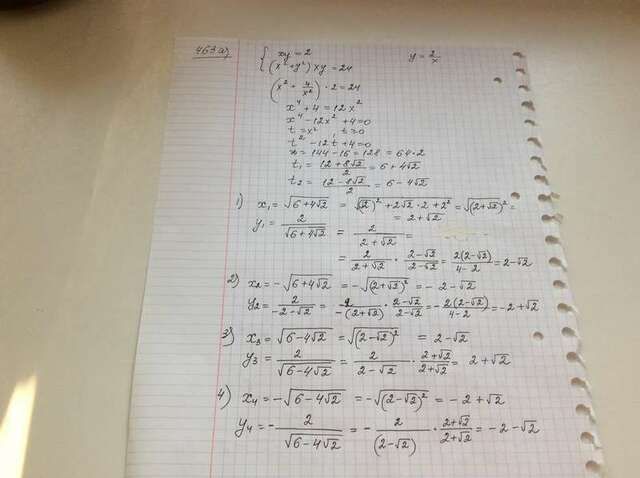 463 а)
{ xy = 2          y = 2/x
(x² + y²) xy = 24
(x² + 4/x²) · 2 = 24
x⁴ + 4 = 12x²
x⁴ - 12x² + 4 = 0
t = x², t ≥ 0
t² - 12t + 4 = 0
D = 144 - 16 = 128 = 64·2
t₁ = (12 + 8√2)/2 = 6 + 4√2
t₂ = (12 - 8√2)/2 = 6 - 4√2
1) x₁ = √(6+4√2) = √((√2)² + 2√2·2 + 2²) = √((2+√2)²) =
= 2 + √2
y₁ = 2/√(6+4√2) = 2/(2+√2) =
= 2/(2+√2) · (2-√2)/(2-√2) = 2(2-√2)/(4-2) = 2-√2
2) x₂ = -√(6+4√2) = -√((2+√2)²) = -2-√2
y₂ = 2/(-2-√2) = 2/(-(2+√2)) · (2-√2)/(2-√2) = -2(2-√2)/(4-2) = -2+√2
3) x₃ = √(6-4√2) = √((2-√2)²) = 2-√2
y₃ = 2/√(6-4√2) = 2/(2-√2) · (2+√2)/(2+√2) = 2+√2
4) x₄ = -√(6-4√2) = -√((2-√2)²) = -2+√2
y₄ = -2/√(6-4√2) = -2/(2-√2) · (2+√2)/(2+√2) = -2-√2